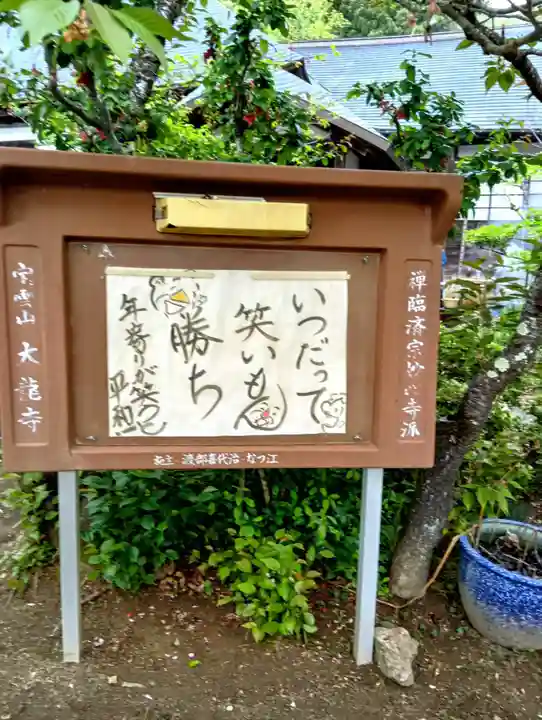 いつだって
笑いもん
勝ち
年寄りが笑うと
平和
禅臨済宗妙心寺派
宝雲山 大龍寺
施主 渡部喜代治・なつ江